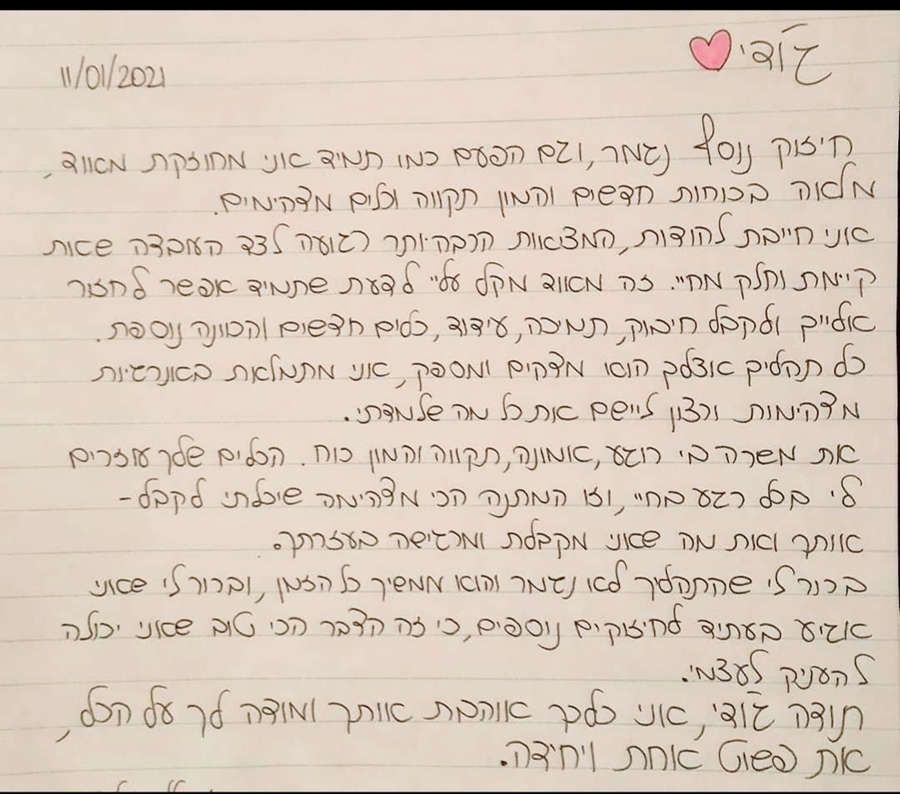 ג'ודי
11/01/2021
חיזוק נוסף נגמר, וגם הפעם כמו תמיד אני מחוזקת מאווד,
מלאה בכוחות חדשים והמון תקווה וכלים מדהימים.
אני חייבת להודות, המצאות הרבה יותר רגועה לצד העובדה שאת
קיימת וחלק מחיי. זה מאווד מקל עליי לדעת שתמיד אפשר לחזור
אלייך ולקבל חיבוק, תמיכה, עידוד, כלים חדשים והכוונה נוספת.
כל תהליך אצלך הוא מדהים ומספק, אני מתמלאת באנרגיות
מדהימות ורצון ליישם את כל מה שלמדתי.
את משרה בי רוגע, אמונה, תקווה והמון כוח. הכלים שלך עוזרים
לי בכל רגע בחיי, וזו המתנה הכי מדהימה שיכלתי לקבל-
אותך ואת מה שאני מקבלת ומרגישה בעזרתך.
ברור לי שהתהליך לא נגמר והוא ממשיך כל הזמן, וברור לי שאני
אגיע בעתיד לחיזוקים נוספים, כי זה הדבר הכי טוב שאני יכולה
להעניק לעצמי.
תודה ג'ודי, אני כלכך אוהבת אותך ומודה לך על הכל,
את פשוט אחת ויחידה.